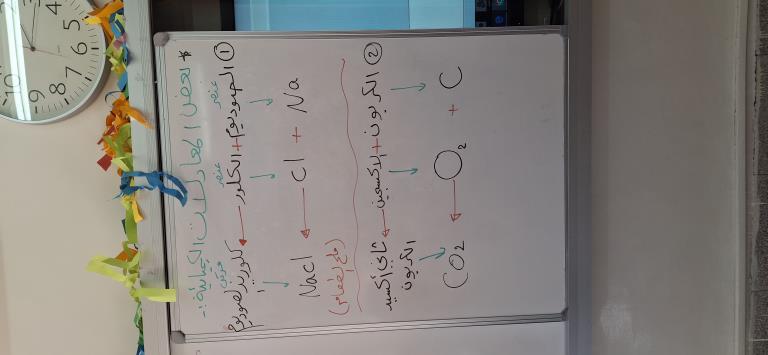 * بعض المعادلات الكيميائية :-
① الصوديوم + الكلور ← كلوريد الصوديوم
عنصر عنصر مركب
Na + Cl ← NaCl
(ملح الطعام)
② الكربون + الاكسجين ← ثاني أكسيد الكربون
C + O₂ ← CO₂
10 9 8 7 6 5 4